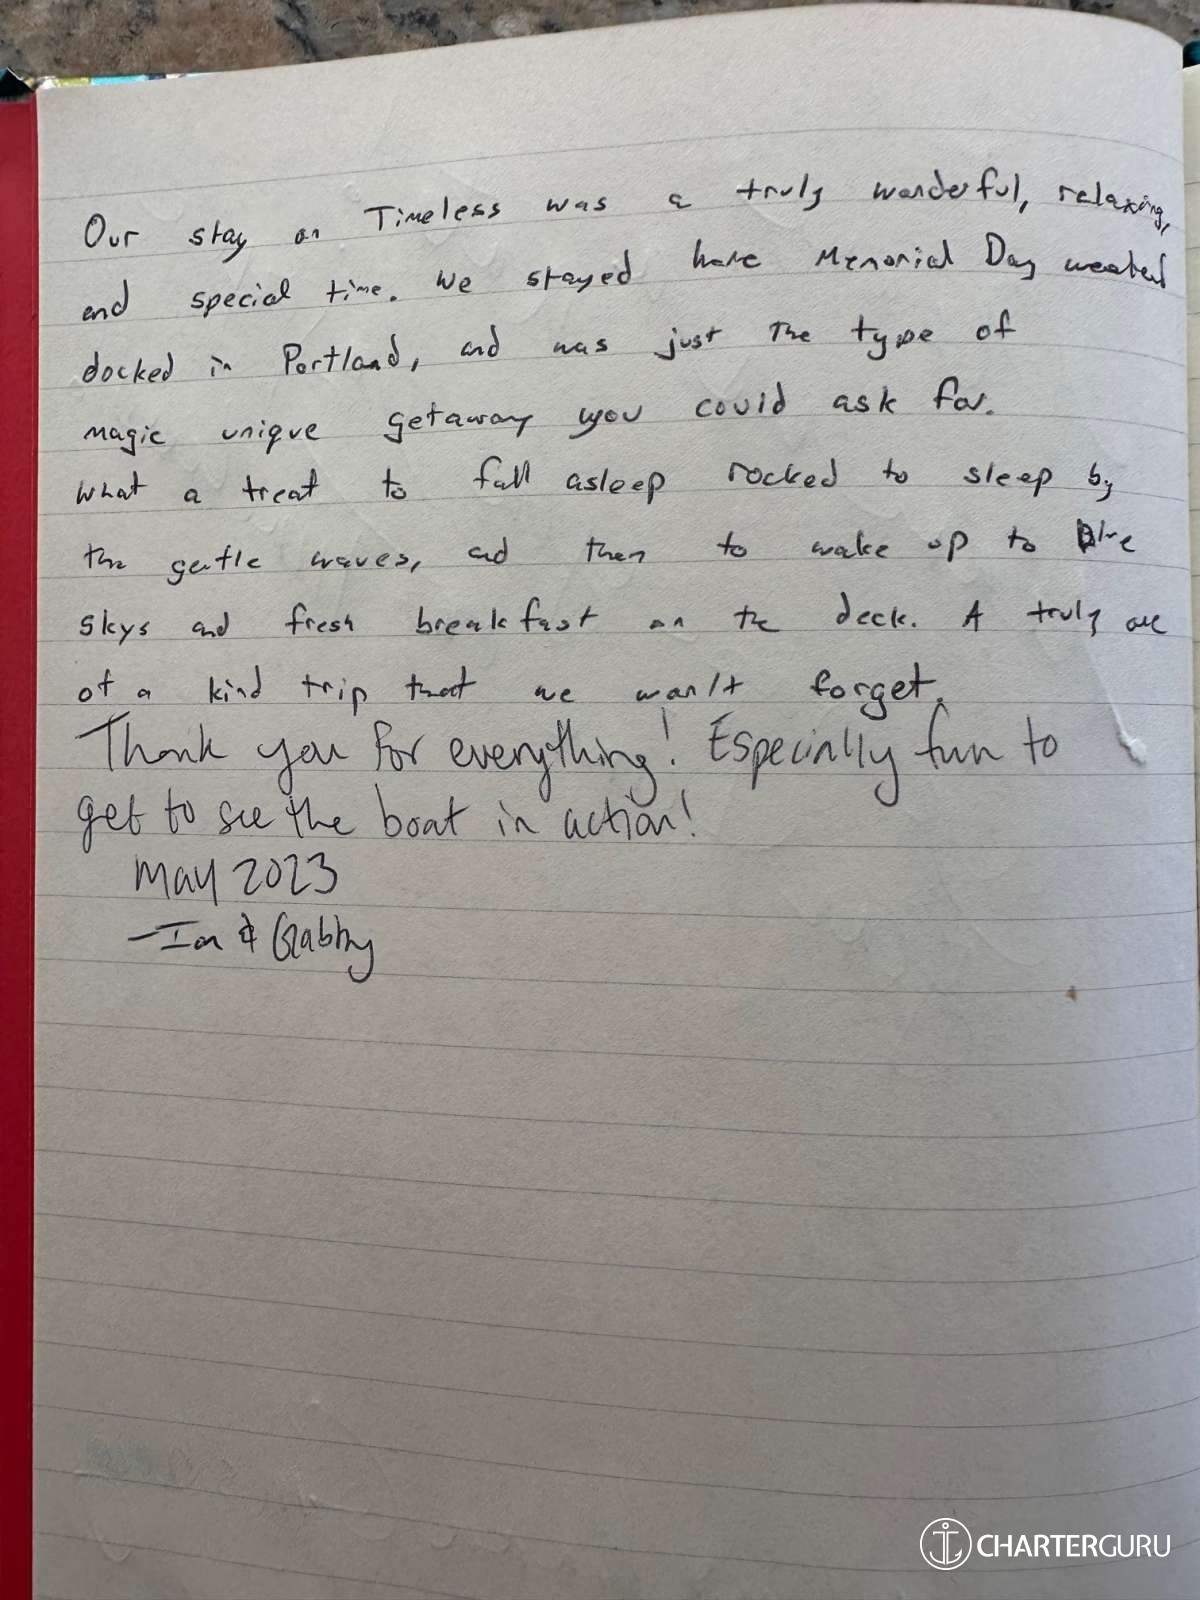 Our stay on Timeless was a truly wonderful, relaxing,
and special time. We stayed here Memorial Day weekend
docked in Portland, and was just the type of
magic unique getaway you could ask for.
What a treat to fall asleep rocked to sleep by
the gentle waves, and then to wake up to blue
skys and fresh breakfast on the deck. A truly one
of a kind trip that we won't forget.
Thank you for everything! Especially fun to
get to see the boat in action!
May 2023
- Ian & Gabby
CHARTERGURU